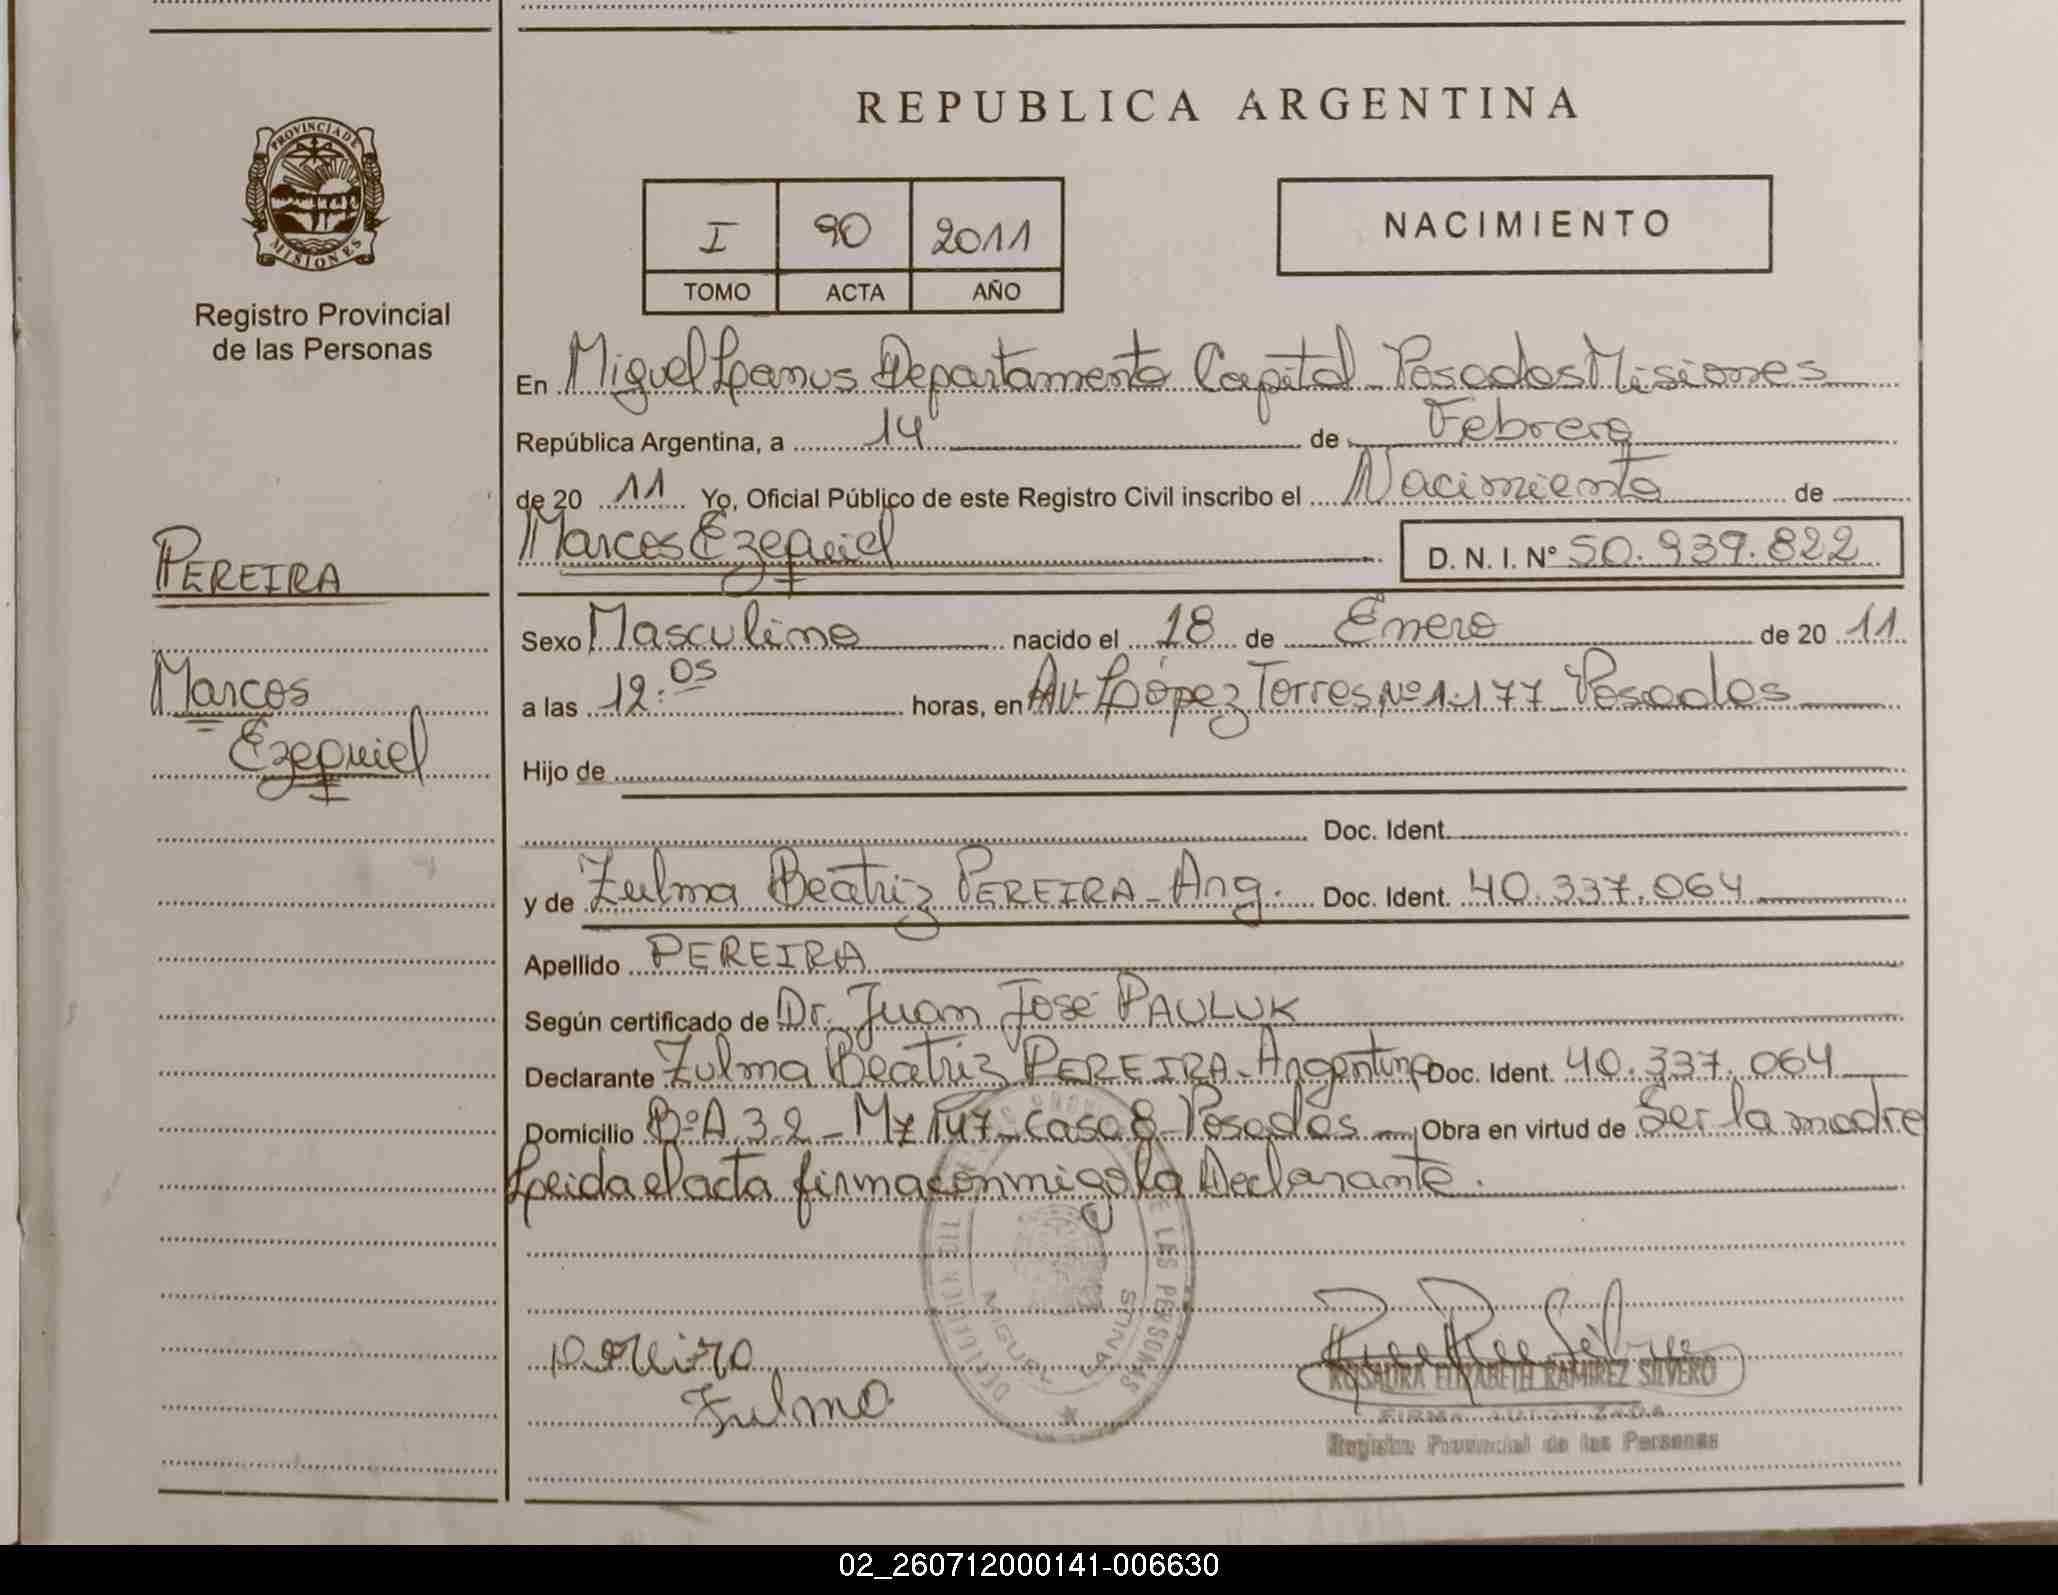 REPUBLICA ARGENTINA
PROVINCIA DE
MISIONES
Registro Provincial
de las Personas
I 90 2011
TOMO ACTA AÑO
NACIMIENTO
En Miguel Lanus Departamento Capital Posadas Misiones
República Argentina, a 14 de Febrero
de 20 11 Yo, Oficial Público de este Registro Civil inscribo el Nacimiento de
Marcos Ezequiel D. N. I. Nº 50.939.822
PEREIRA
Marcos
Ezequiel
Sexo Masculino nacido el 18 de Enero de 20 11
a las 12:05 horas, en Av. López Torres Nº 1.177 Posadas
Hijo de
Doc. Ident.
y de Zulma Beatriz PEREIRA - Arg. Doc. Ident. 40.337.064
Apellido PEREIRA
Según certificado de Dr. Juan José PAULUK
Declarante Zulma Beatriz PEREIRA - Argentina Doc. Ident. 40.337.064
Domicilio Bº A 3.2 - Mz 147 - Casa 8 - Posadas Obra en virtud de Ser la madre
Leida el acta firma conmigo la Declarante.
DE LAS PERSONAS
MIGUEL LANUS
Pereira
Zulma
ROSAURA ELIZABETH RAMIREZ SILVERO
FIRMA AUTORIZADA
Registro Provincial de las Personas
02_260712000141-006630